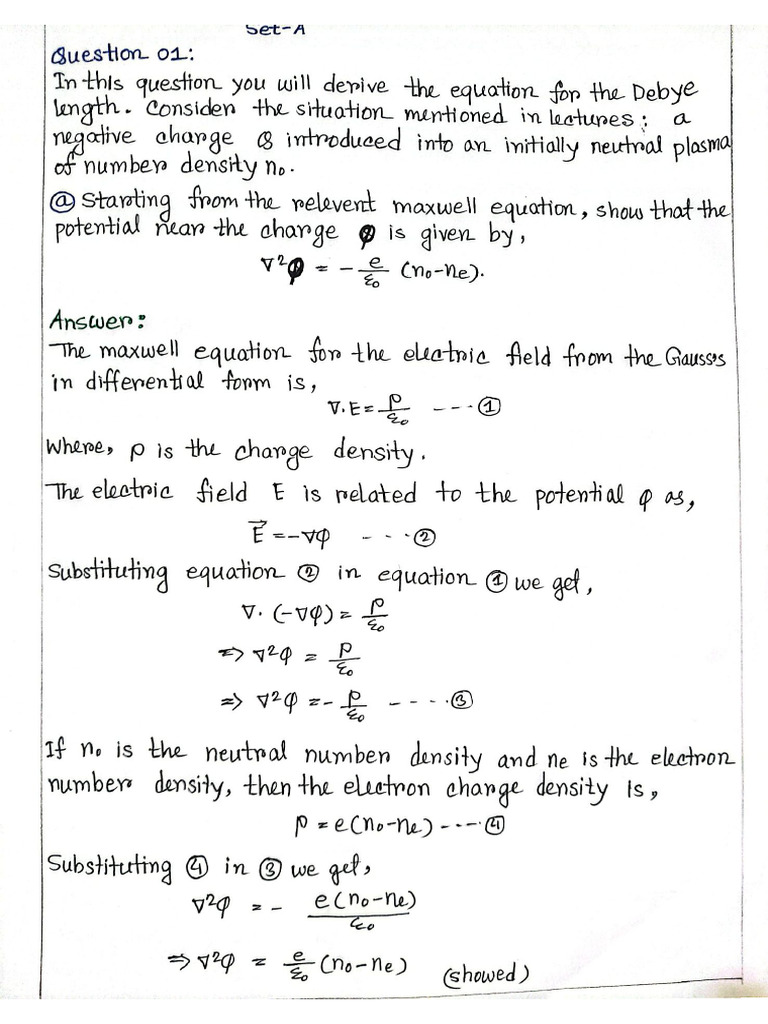 Set-A
Question 01:
In this question you will derive the equation for the Debye
length. Consider the situation mentioned in lectures; a
negative charge Q is introduced into an initially neutral plasma
of number density n₀.
ⓐ Starting from the relevent maxwell equation, show that the
potential near the charge φ is given by,
∇²φ = -e/ε₀ (n₀-ne).
Answer:
The maxwell equation for the electric field from the Gauss's
in differential form is,
∇.E = ρ/ε₀ ---- ①
Where, ρ is the charge density.
The electric field E is related to the potential φ as,
E⃗ = -∇φ - ---②
Substituting equation ② in equation ① we get,
∇. (-∇φ) = ρ/ε₀
=> ∇²φ = ρ/ε₀
=> ∇²φ = - ρ/ε₀ - - - - ③
If n₀ is the neutral number density and ne is the electron
number density, then the electron charge density is,
ρ = e(n₀-ne) ----④
Substituting ④ in ③ we get,
∇²φ = - e(n₀-ne)/ε₀
=> ∇²φ = e/ε₀ (n₀-ne) (showed)